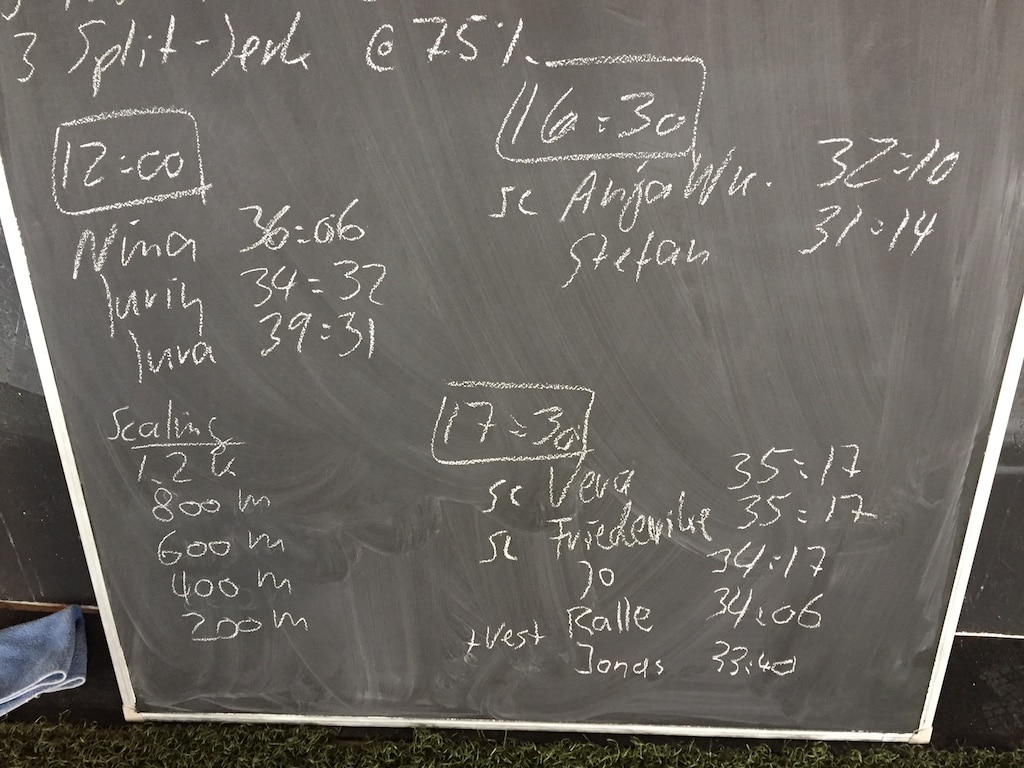 3 Split-Jerk @ 75%
12:00
Nina 36:06
34:32
39:31
16:30
sc Anja Wu. 32:10
Stefan 31:14
Scaling
1.2 k
800 m
600 m
400 m
200 m
17:30
sc Vera 35:17
sc Friederike 35:17
Jo 34:17
Ralle 34:06
+Vest Jonas 33:40